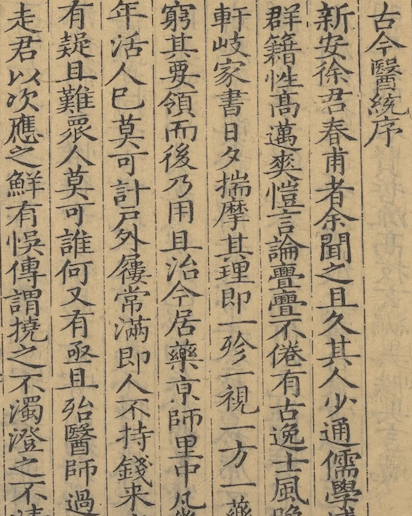 古今醫統序
新安徐君春甫者余聞之且久其人少通儒學
群籍性高邁爽愷言論亹亹不倦有古逸士風
軒岐家書日夕揣摩其理即一殄一視一方一藥
窮其要領而後乃用且治今居藥京師里中凡
年活人已莫可計戸外屨常滿即人不持錢来
有疑且難眾人莫可誰何又有亟且殆醫師過
走君以次應之鮮有悞傳謂撓之不濁澄之不清